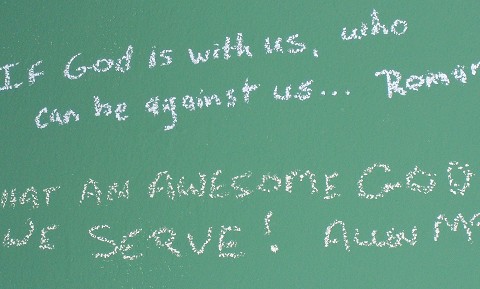 IF God is with us, who
can be against us... Roman
HAT AN AWESOME GOD
WE SERVE!